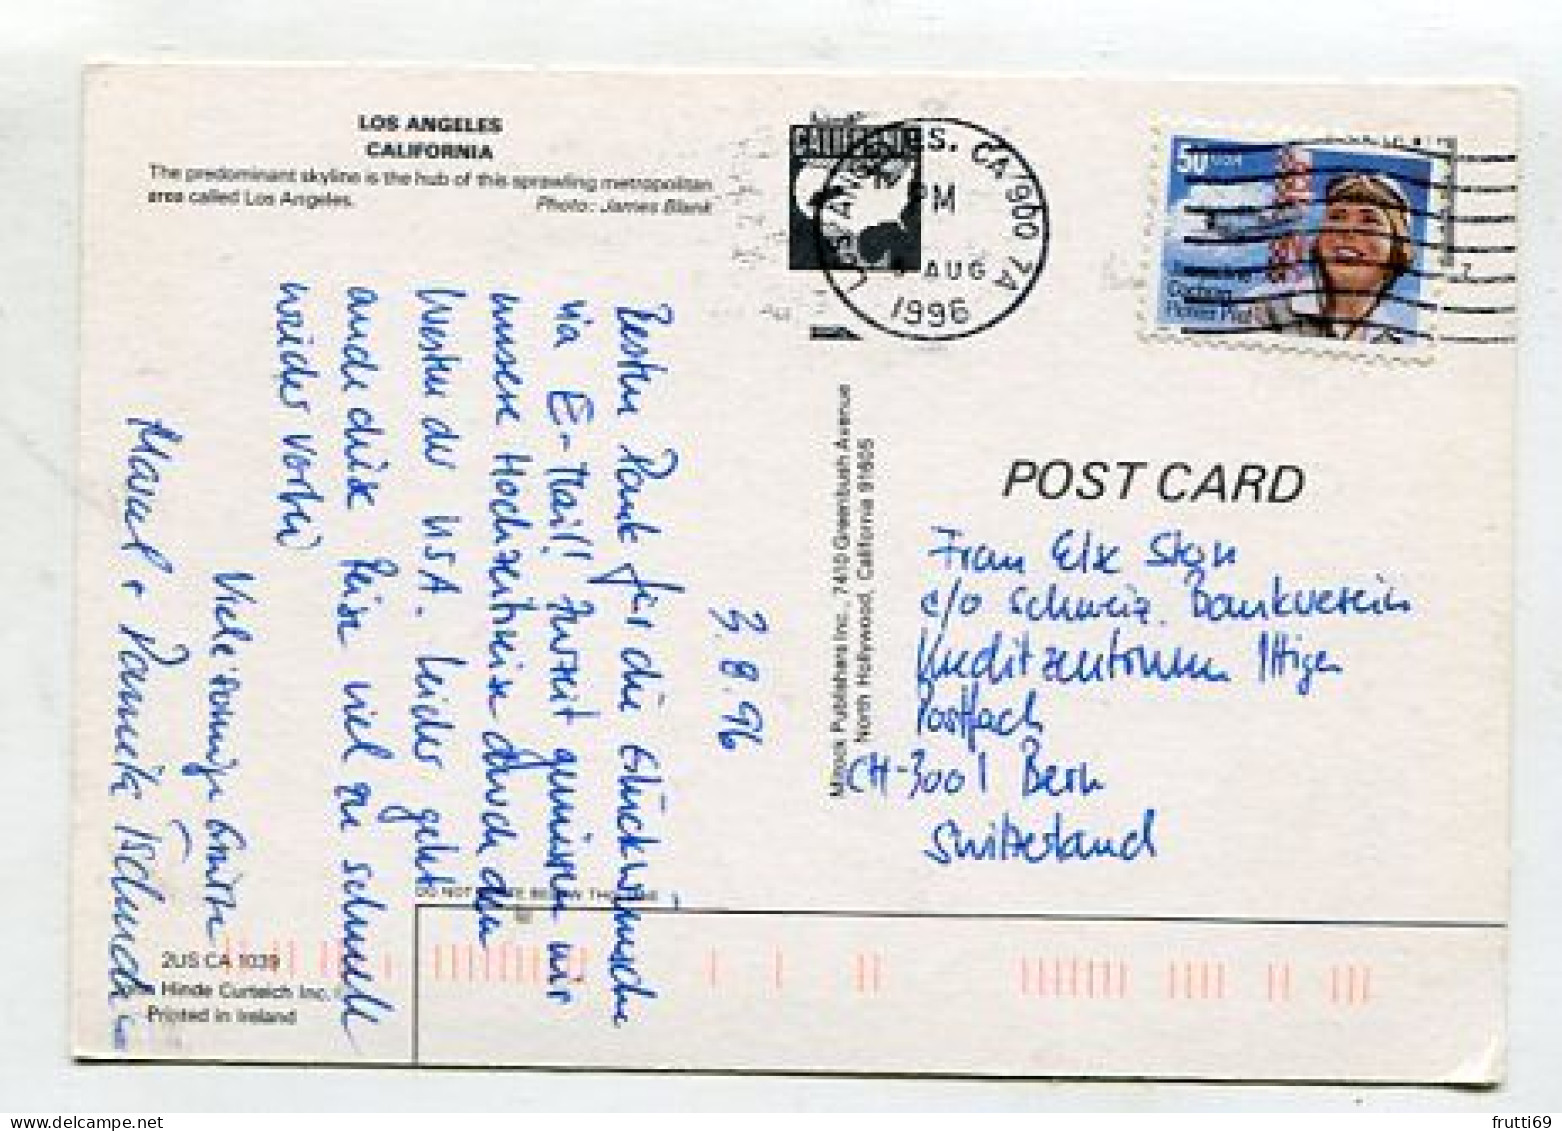 LOS ANGELES
CALIFORNIA
The predominant skyline is the hub of this sprawling metropolitan
area called Los Angeles.
Photo: James Blank
CALIFORNIA
LOS ANGELES, CA 900 7A
PM
AUG
1996
50
Cochran
Pioneer Pilot
3.8.96
Besten Dank für die Glückwünsche
via E-Mail! Zurzeit geniessen wir
unsere Hochzeitreise durch den
Westen der USA. Leider geht
auch diese Reise viel zu schnell
wieder vorbei
Viele sonnige Grüsse
Marcel + Tschudi
Publishers Inc., 7410 Greenbush Avenue
North Hollywood, California 91605
POST CARD
Frau Else
c/o Schweiz. Bankverein
Kreditzentrum Ittigen
Postfach
CH-3001 Bern
Switzerland
DO NOT WRITE BELOW THIS LINE
2US CA 1039
John Hinde Curteich Inc.
Printed in Ireland
frutti69